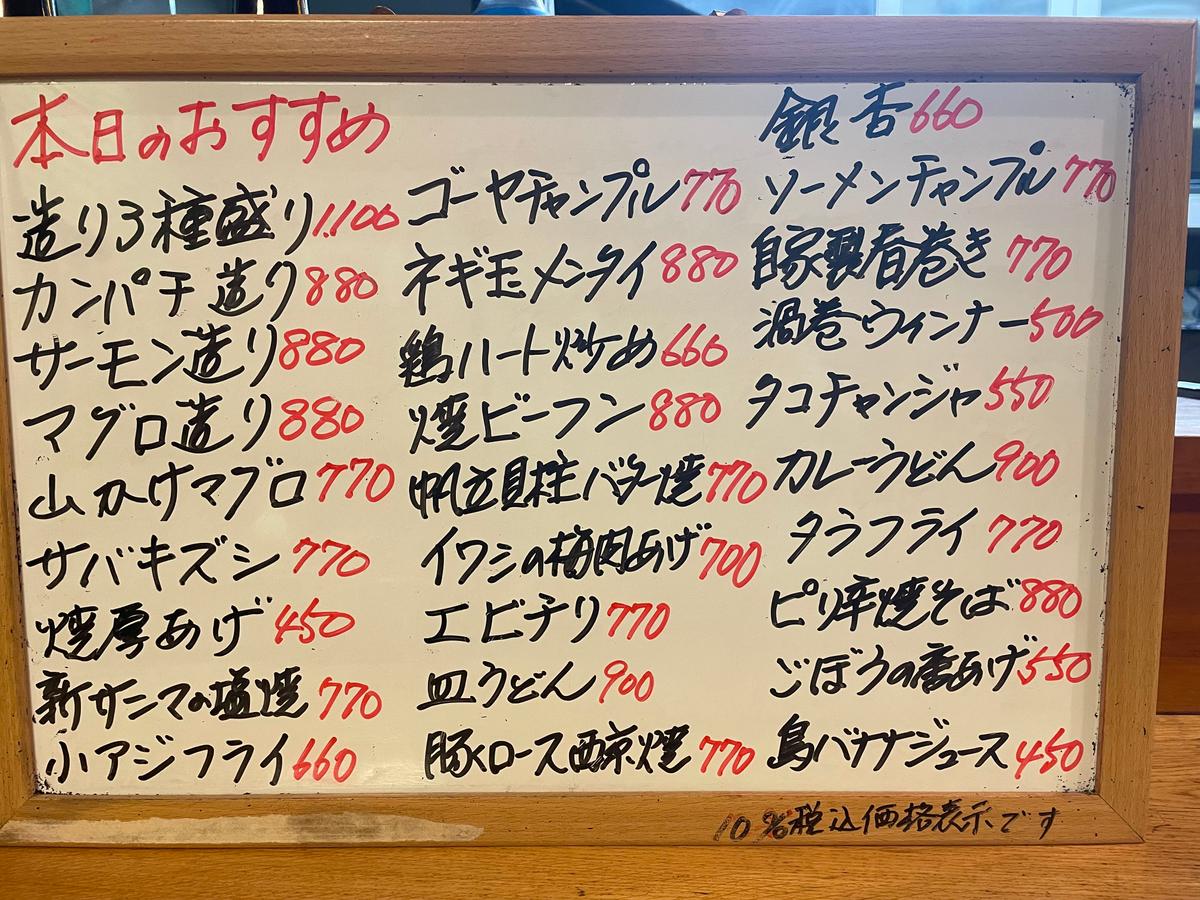 本日のおすすめ
造り3種盛り1,100
カンパチ造り880
サーモン造り880
マグロ造り880
山かけマグロ770
サバキズシ770
焼厚あげ450
新サンマの塩焼770
小アジフライ660
ゴーヤチャンプル770
ネギ玉メンタイ880
鶏ハート炒め660
焼ビーフン880
帆立貝柱バター焼770
イワシの梅肉あげ700
エビチリ770
皿うどん900
豚ロース西京焼770
銀杏660
ソーメンチャンプル770
自家製春巻き770
渦巻ウィンナー500
タコチャンジャ550
カレーうどん900
タラフライ770
ピリ辛焼そば880
ごぼうの唐あげ550
島バナナジュース450
10%税込価格表示です